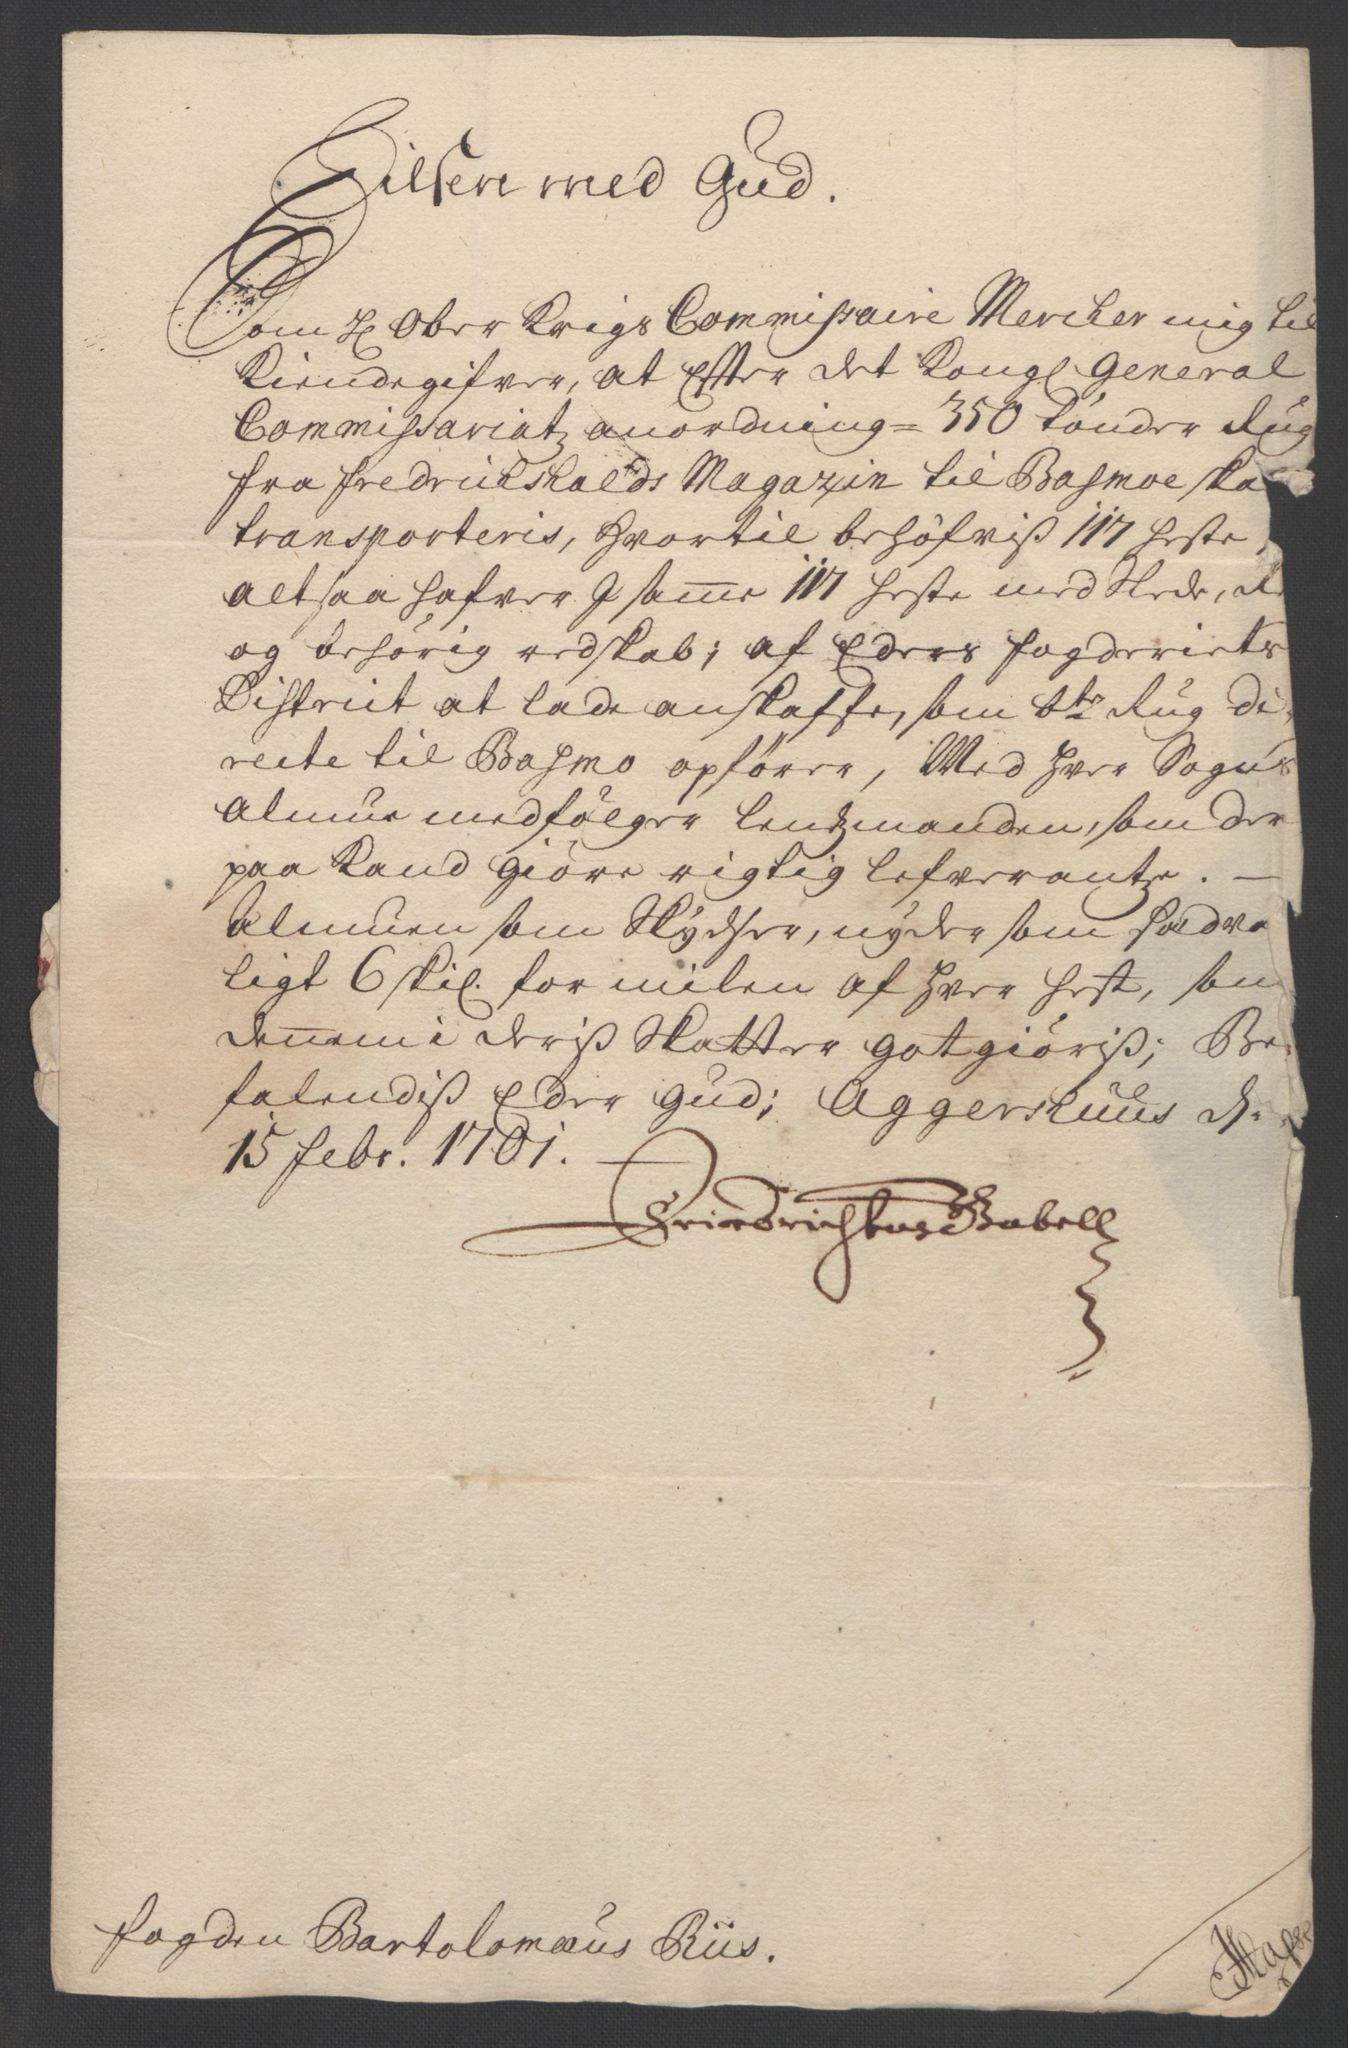 Hilsen med Gud.
Som Hr Ober Krigs Commissaire Mercker mig til
kiendegifver, at Efter det Kongl General
Commissariatz anordning = 350 tønder Rug
fra Fredrichshalds Magazin til Basmoe ska
transporteris, Hvortil behøfviss 117 heste,
altsaa hafver I samme 117 heste med Slede,
og behørig redskab; af Eders fogderiets
District at lade anskaffe, som bte Rug di-
recte til Basmo opfører, Med hver Sogns
Almue medfølger lendzmanden, som der
paa kand giøre rigtig lefverantze. —
Almuen som skydser, nyder som sædva
ligt 6 skil. for milen af hver hest, som
dennem i deriss Skatter gotgiøriss; Be-
falendiss Eder Gud; Aggershuus d.
15 febr. 1701. —
Friedrich Gabell
Fogden Bartolomæus Riis.